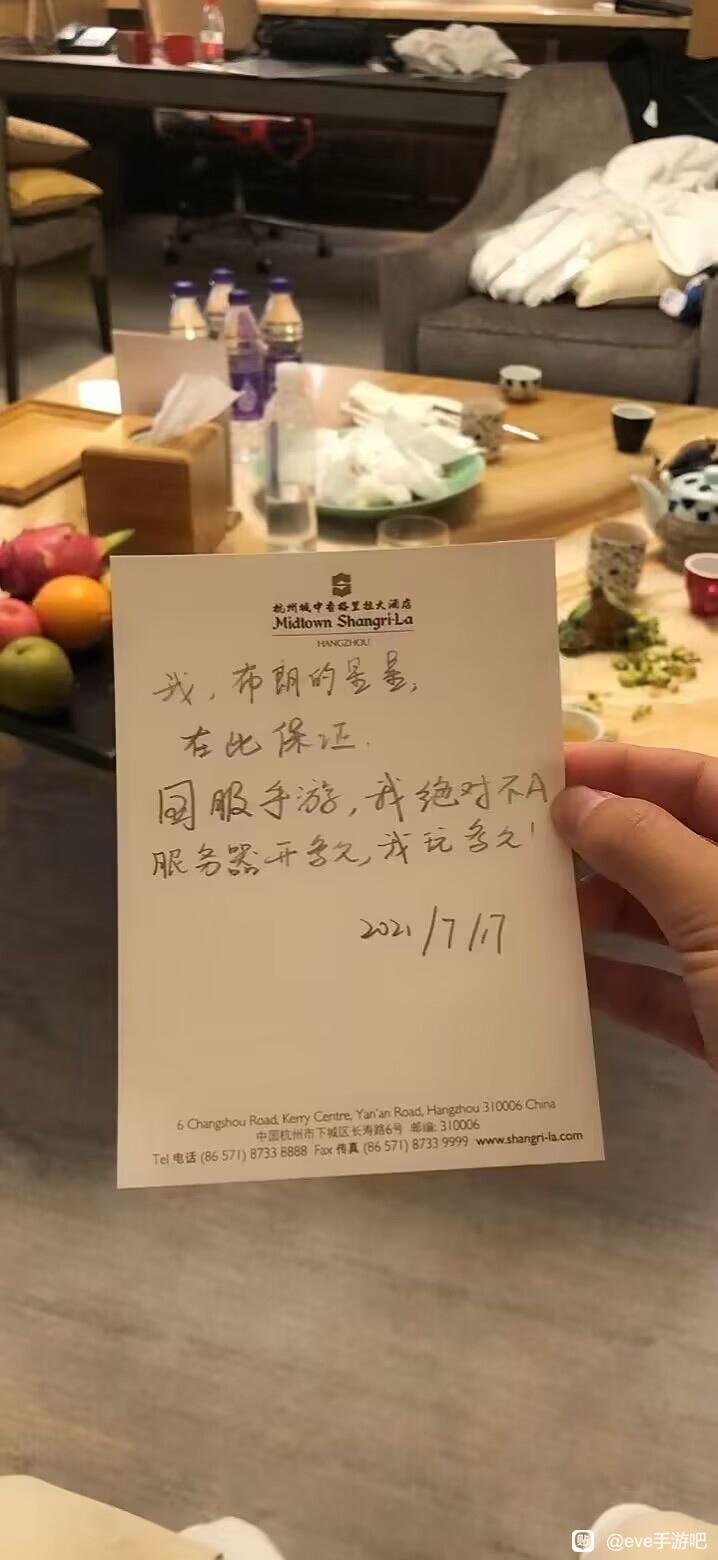 杭州城中香格里拉大酒店
Midtown Shangri-La
HANGZHOU
我，布朗的星星，
在此保证．
国服手游，我绝对不A
服务器开多久，我玩多久！
2021/7/17
6 Changshou Road, Kerry Centre, Yan'an Road, Hangzhou 310006 China
中国杭州市下城区长寿路6号 邮编: 310006
Tel 电话 (86 571) 8733 8888 Fax 传真 (86 571) 8733 9999 www.shangri-la.com
贴 @eve手游吧